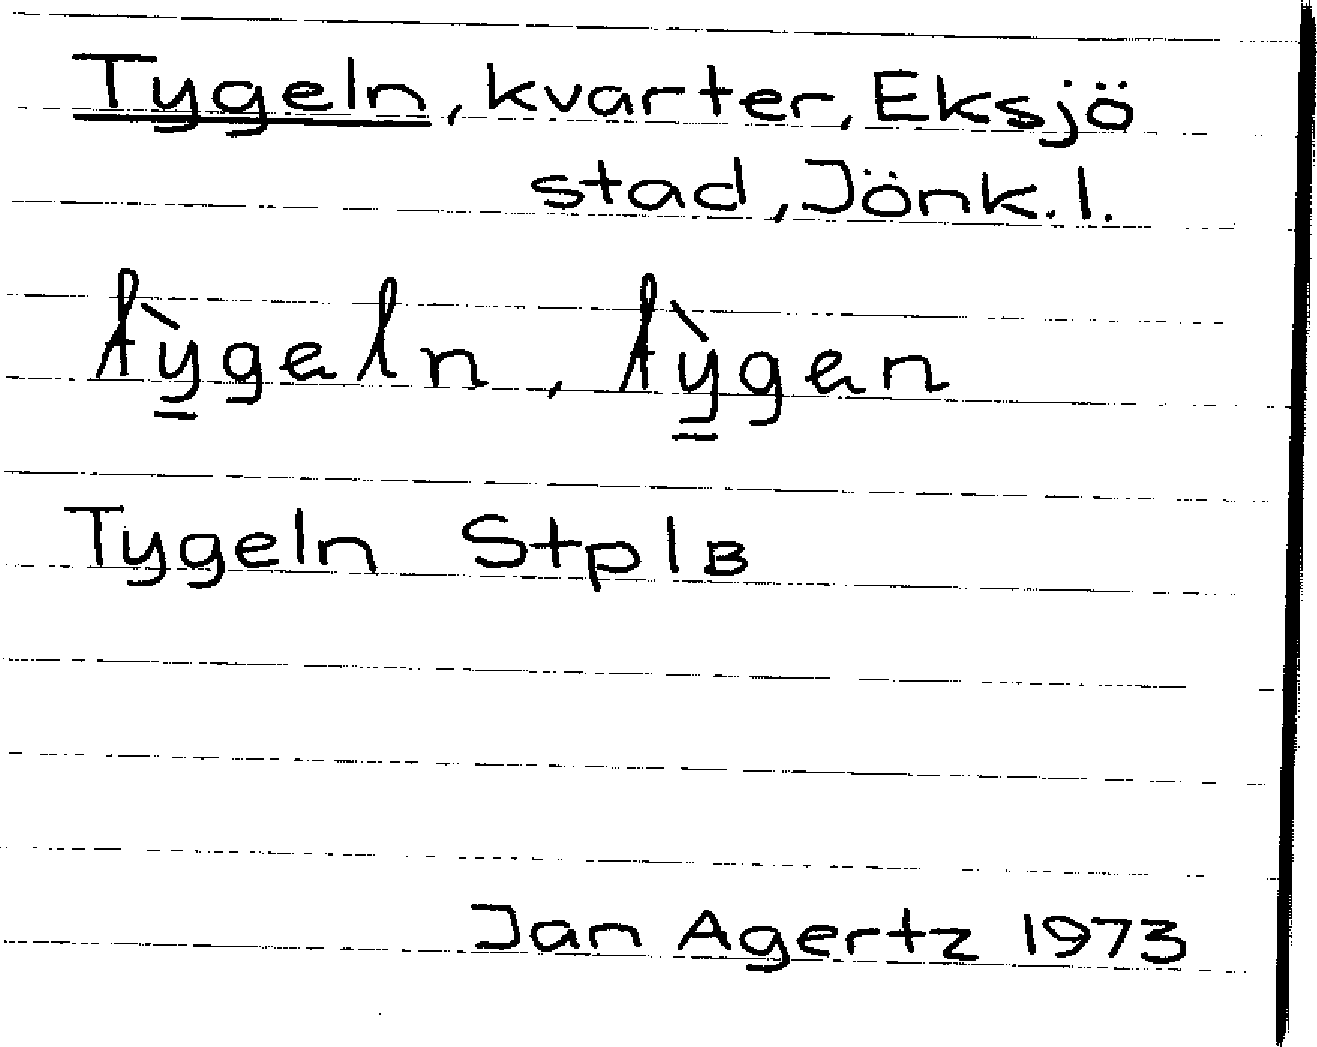 Tygeln, kvarter, Eksjö
stad, Jönk. l.
tỳ̲geln, tỳ̲gen
Tygeln Stplb
Jan Agertz 1973